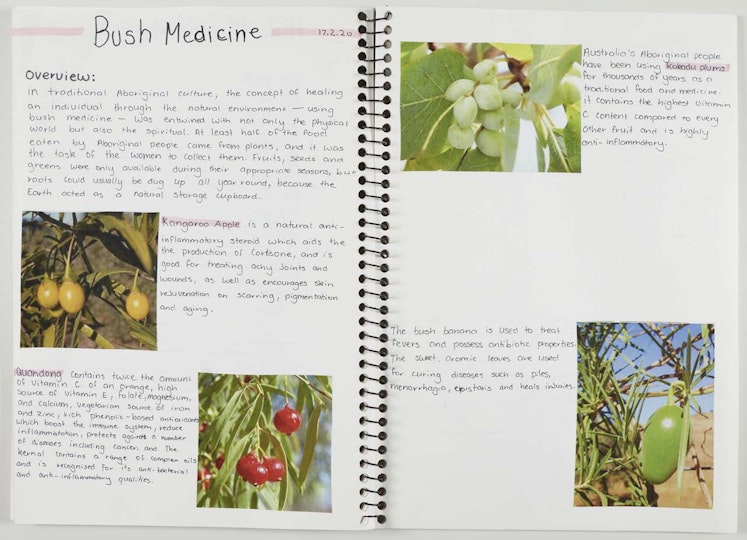 Bush Medicine
17.2.20
Overview:
In traditional Aboriginal culture, the concept of healing
an individual through the natural environment — using
bush medicine — was entwined with not only the physical
world but also the spiritual. At least half of the food
eaten by Aboriginal people came from plants, and it was
the task of the women to collect them. Fruits, seeds and
greens were only available during their appropriate seasons, but
roots could usually be dug up all year round, because the
Earth acted as a natural storage cupboard.
Kangaroo Apple is a natural anti-
inflammatory steroid which aids the
the production of Cortisone, and is
good for treating achy joints and
wounds, as well as encourages skin
rejuvenation on scarring, pigmentation
and aging.
Quandong contains twice the amount
of vitamin C of an orange, high
source of vitamin E, folate, magnesium,
and calcium, vegetarian source of iron
and zinc, rich phenolic-based antioxidants
which boost the immune system, reduce
inflammation, protects against a number
of diseases including cancer and The
Kernal contains a range of complex oils
and is recognised for its anti-bacterial
and anti-inflammatory qualities.
Australia's Aboriginal people
have been using Kakadu plums
for thousands of years as a
traditional food and medicine.
it contains the highest vitamin
C content compared to every
other fruit and is highly
anti-inflammatory.
The bush banana is used to treat
fevers and possess antibiotic properties.
The sweet, aromic leaves are used
for curing diseases such as piles,
menorrhagia, epistaxis and heals injuries.